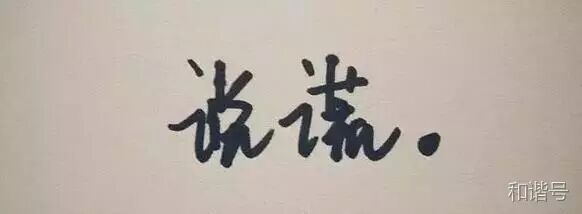 说谎。
和谐号